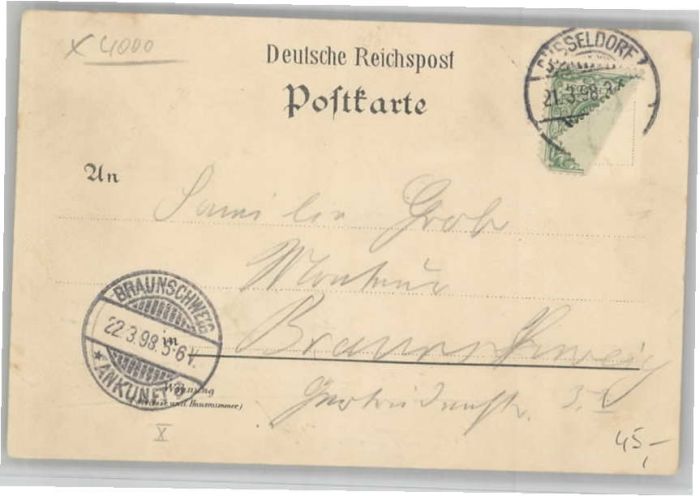 x 4000
Deutsche Reichspost
Postkarte
DÜSSELDORF
21.3.98
An
Familie Grobe
Monteur
in Braunschweig
BRAUNSCHWEIG
22.3.98.5-6V.
* ANKUNFT
Wohnung
(Strasse und Hausnummer)
Gertrudenstr. 3. I
X
45,-